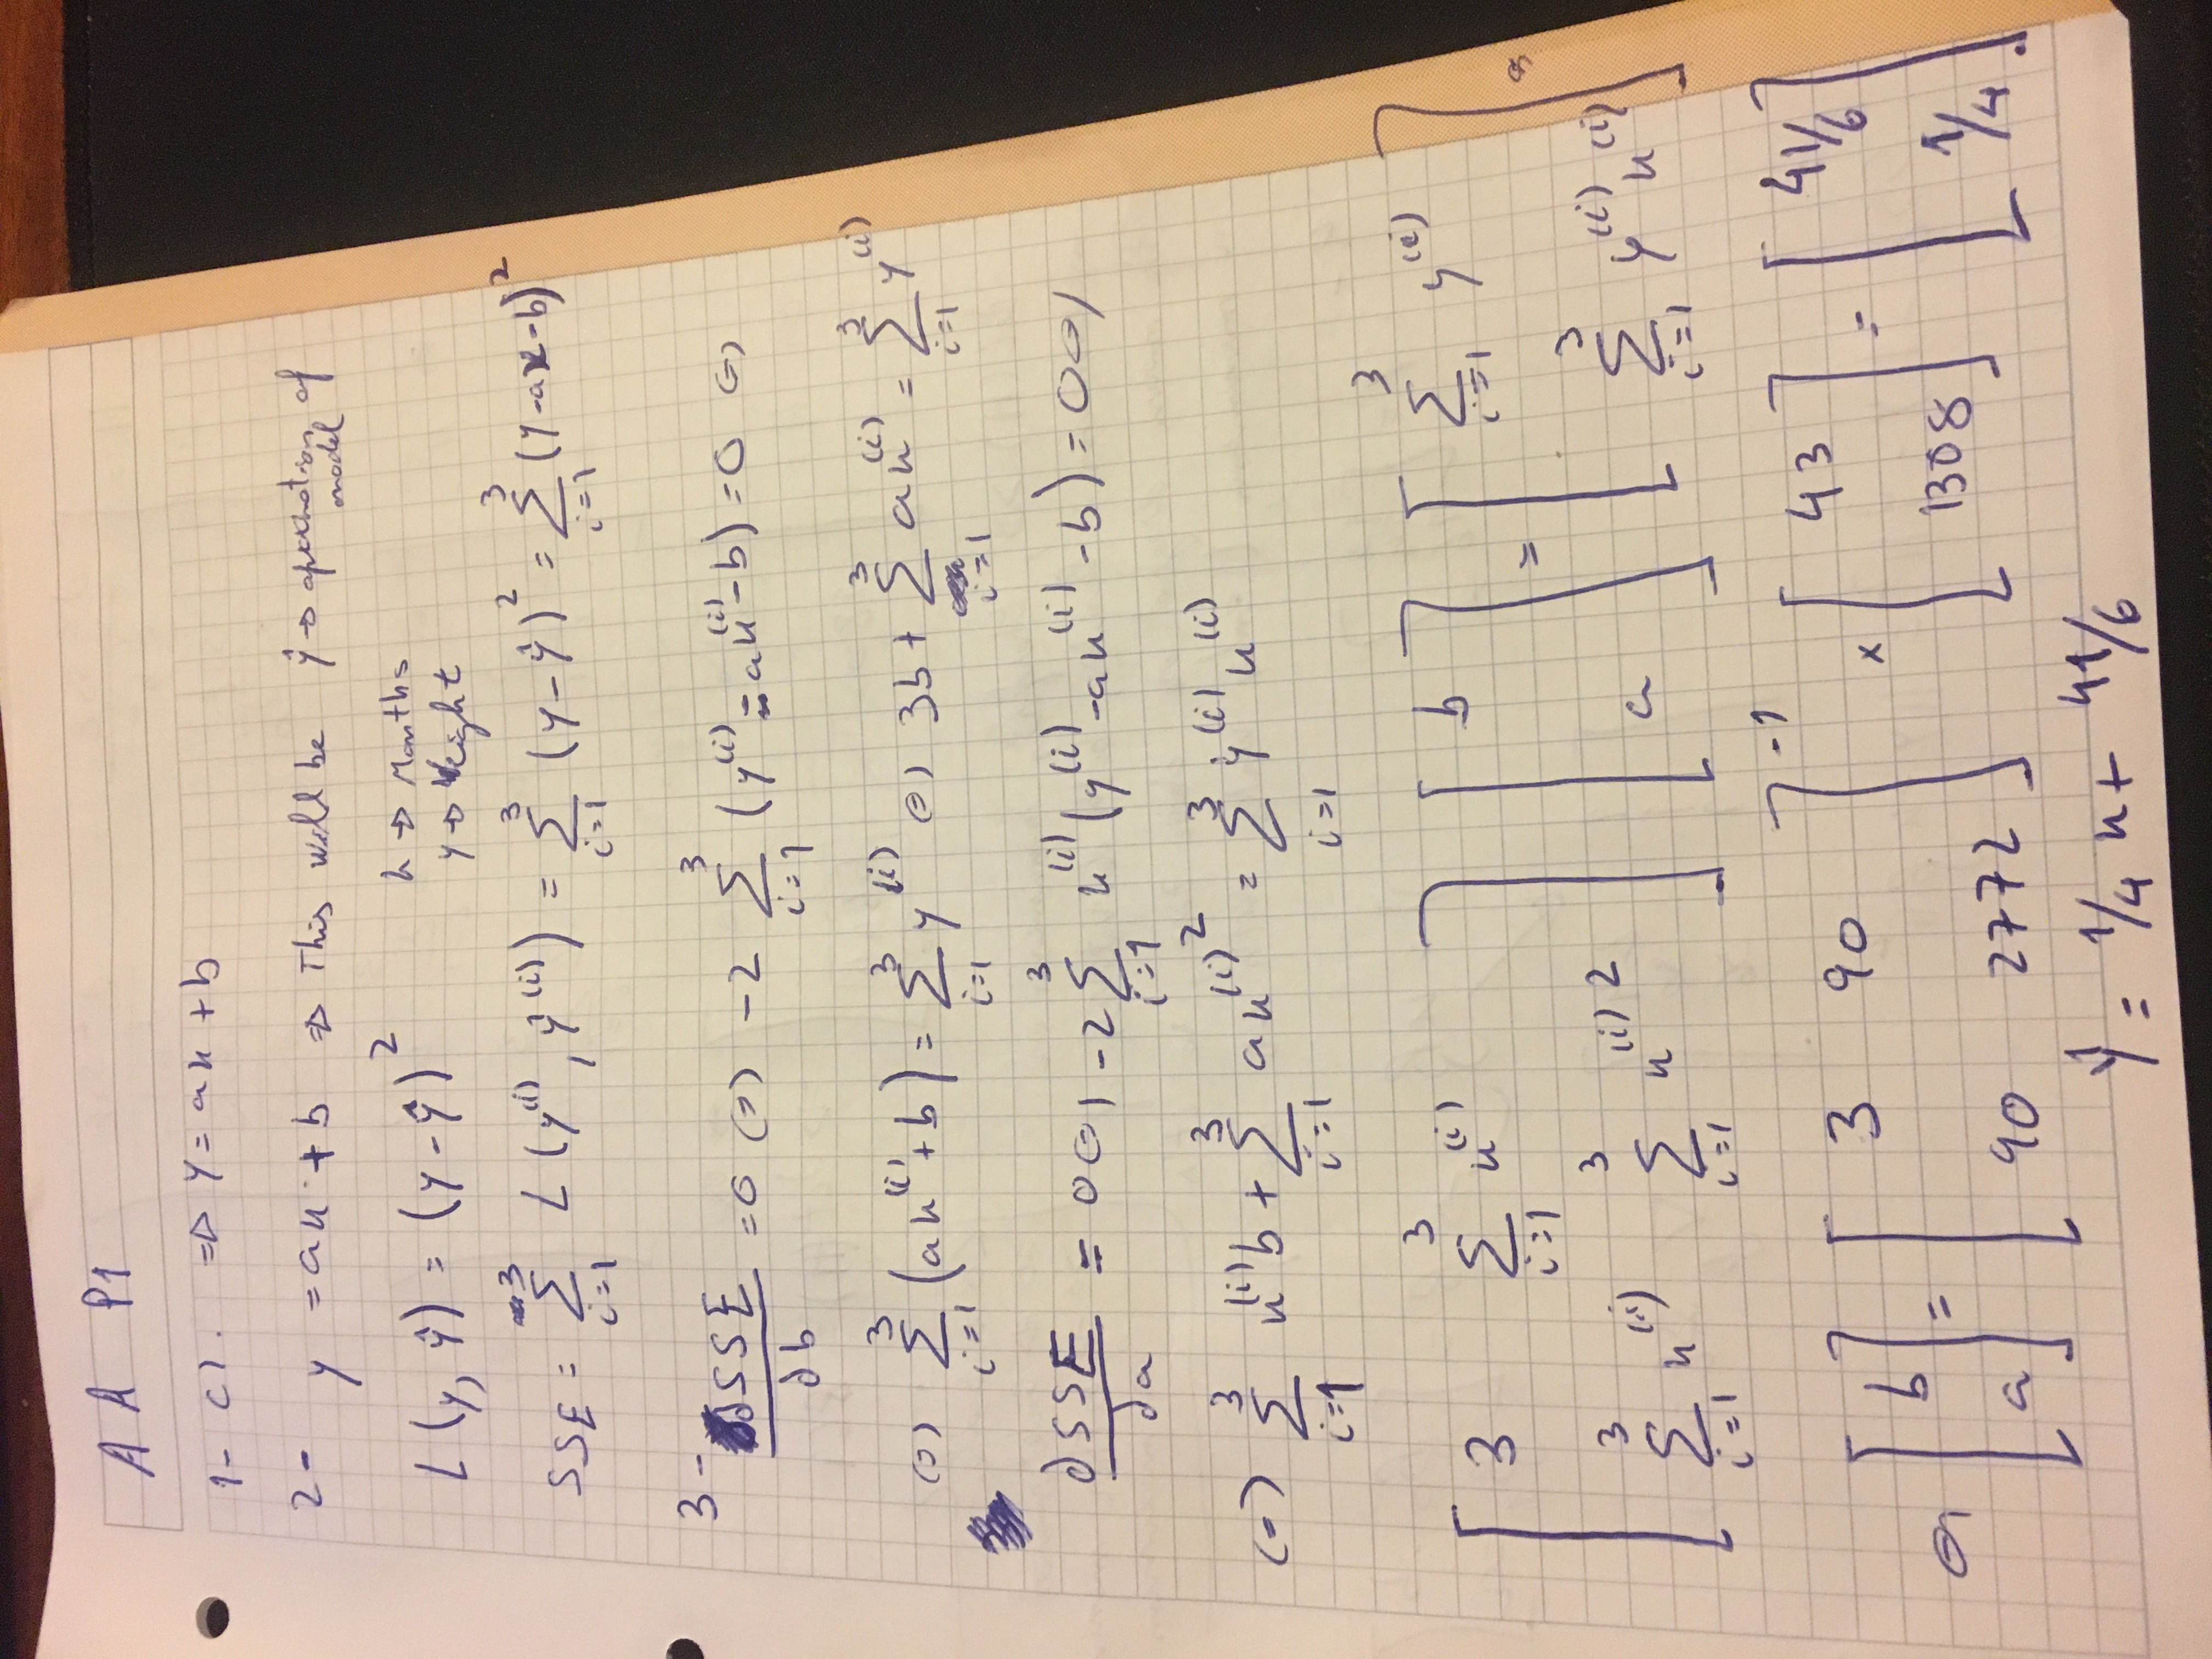 AA P1
1- c). => y = ax + b
2- y = ax + b => This will be ŷ → of model
L(y, ŷ) = (y - ŷ)²
x → Months
y → Weight
SSE = Σ_{i=1}^{3} L(y^(i), ŷ^(i)) = Σ_{i=1}^{3} (y - ŷ)² = Σ_{i=1}^{3} (y - ax - b)²
3- ∂SSE/∂b = 0 (=) -2 Σ_{i=1}^{3} (y^(i) - ax^(i) - b) = 0 (=)
(=) Σ_{i=1}^{3} (ax^(i) + b) = Σ_{i=1}^{3} y^(i) (=) 3b + Σ_{i=1}^{3} ax^(i) = Σ_{i=1}^{3} y^(i)
∂SSE/∂a = 0 (=) -2 Σ_{i=1}^{3} x^(i) (y^(i) - ax^(i) - b) = 0 (=)
(=) Σ_{i=1}^{3} x^(i) b + Σ_{i=1}^{3} ax^(i)² = Σ_{i=1}^{3} y^(i) x^(i)
[ 3 Σ_{i=1}^{3} x^(i) ; Σ_{i=1}^{3} x^(i) Σ_{i=1}^{3} x^(i)² ] [ b ; a ] = [ Σ_{i=1}^{3} y^(i) ; Σ_{i=1}^{3} y^(i) x^(i) ] (=)
(=) [ b ; a ] = [ 3 90 ; 90 2772 ]^-1 × [ 43 ; 1308 ] = [ 41/6 ; 1/4 ]
ŷ = 1/4 x + 41/6